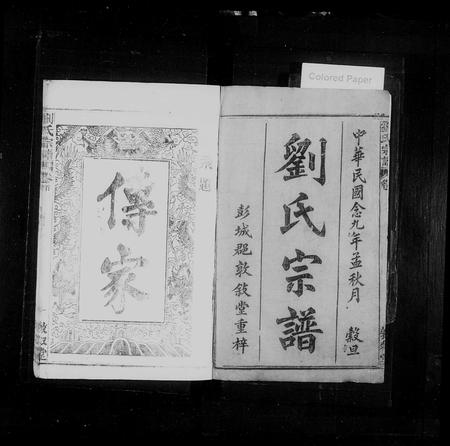 Colored Paper
中華民國念九年孟秋月 穀旦
劉氏宗譜
彭城郡敦敘堂重梓
傳家
劉氏宗譜